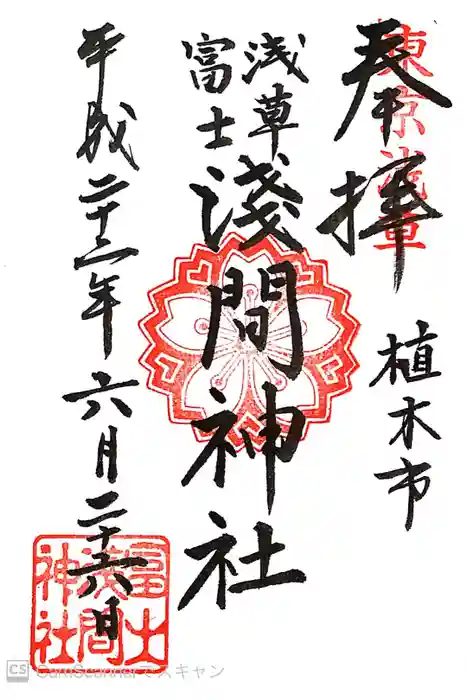 奉拝
東京浅草
植木市
浅草
富士
淺間神社
平成二十二年六月二十六日
富士
淺間
神社
CS CamScannerでスキャン